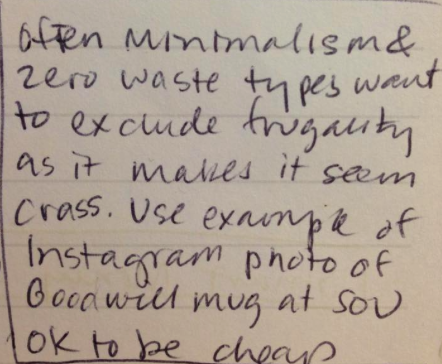 often minimalism &
zero waste types want
to exclude frugality
as it makes it seem
crass. Use example of
Instagram photo of
Goodwill mug at SOV
OK to be cheap